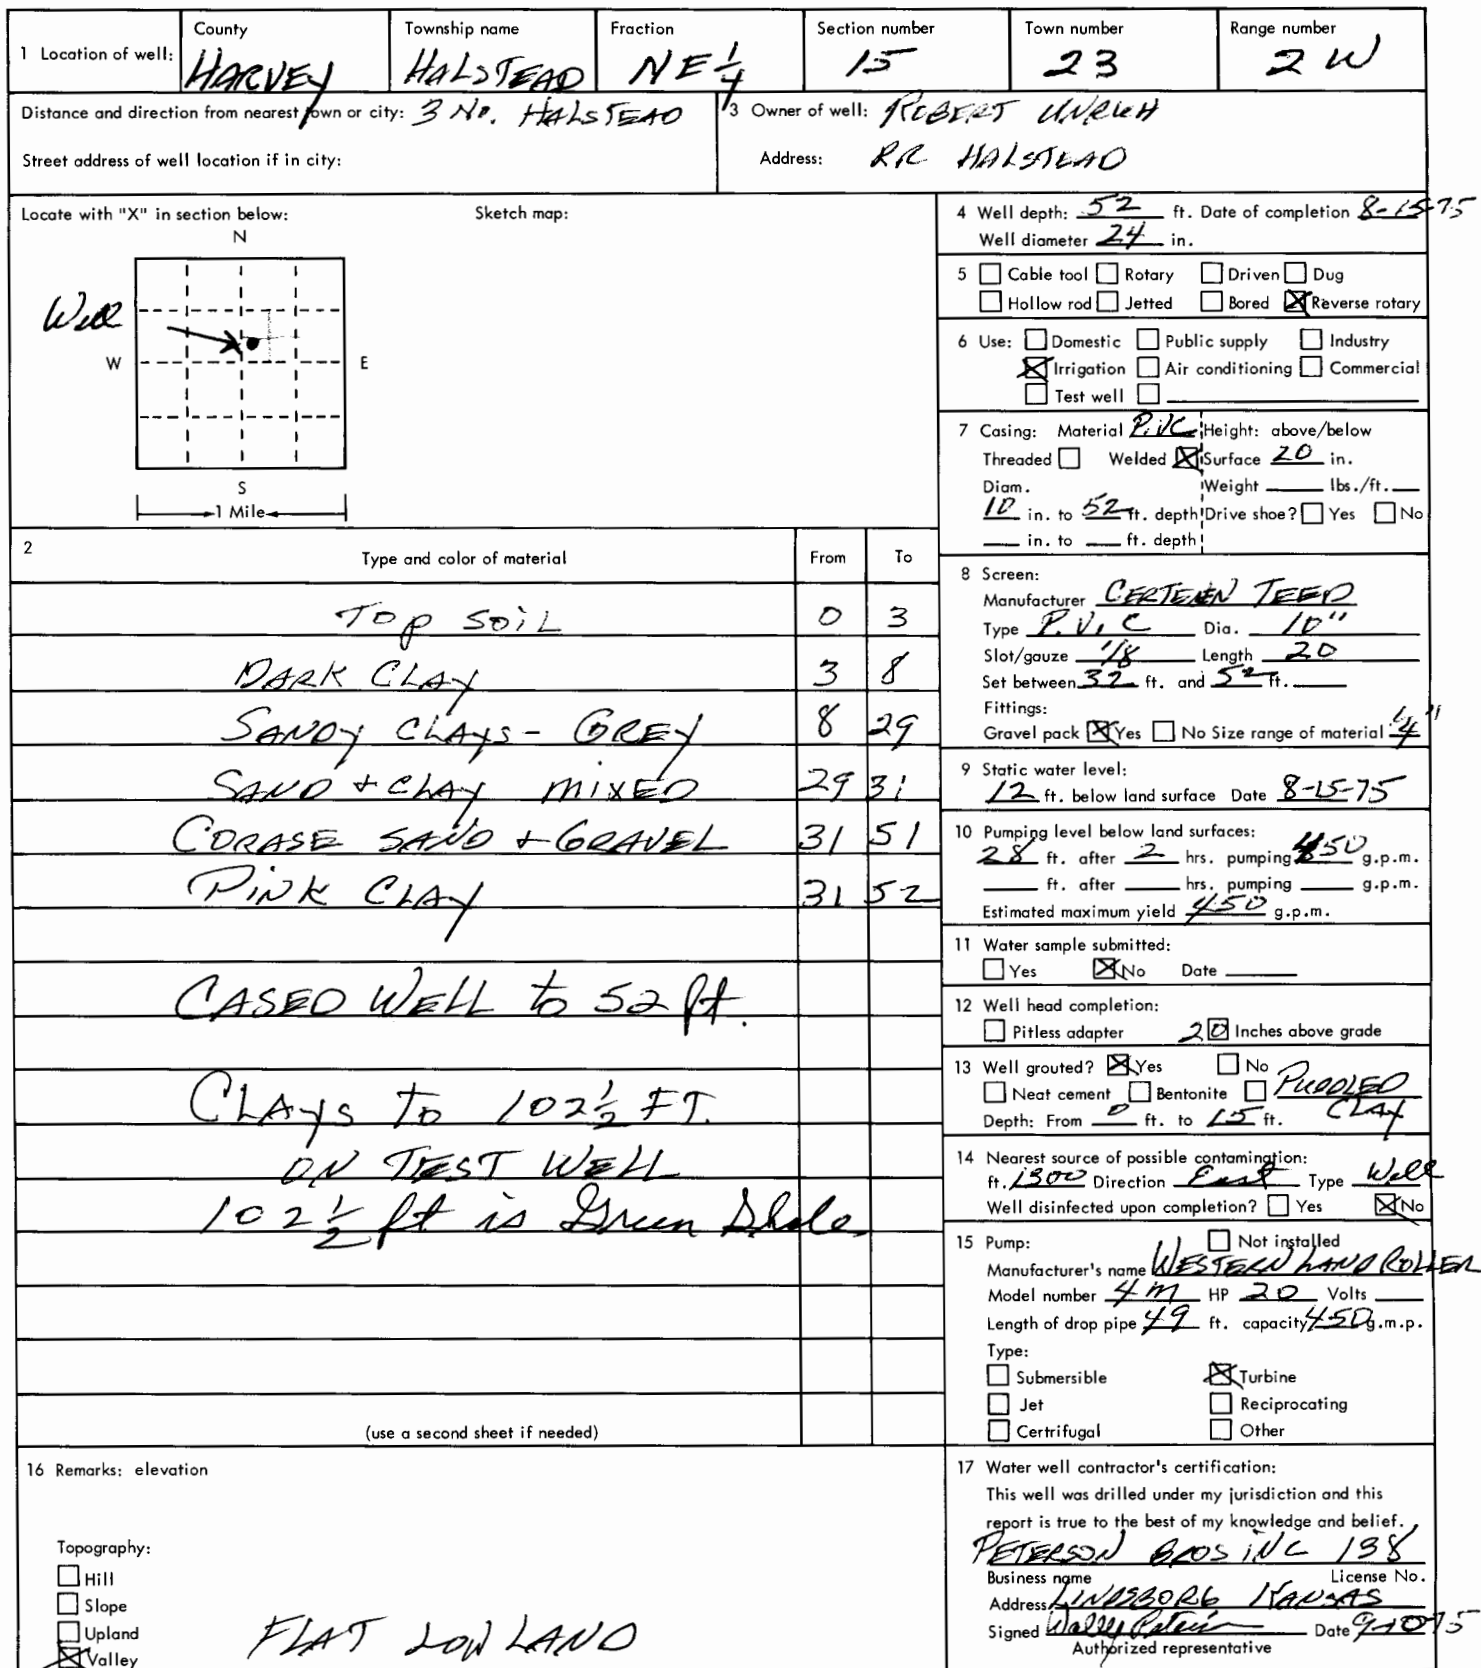 1 Location of well:
County
HARVEY
Township name
HALSTEAD
Fraction
NE 1/4
Section number
15
Town number
23
Range number
2 W
Distance and direction from nearest town or city: 3 No. HALSTEAD
Street address of well location if in city:
3 Owner of well: ROBERT UNRUH
Address: RR HALSTEAD
Locate with "X" in section below:
Sketch map:
N
Well
W
E
S
1 Mile
2
Type and color of material From To
TOP SOIL 0 3
DARK CLAY 3 8
SANDY CLAYS - GREY 8 29
SAND + CLAY MIXED 29 31
CORASE SAND + GRAVEL 31 51
PINK CLAY 31 52
CASED WELL to 52 ft.
CLAYS TO 102 1/2 FT.
ON TEST WELL
102 1/2 ft is Green Shale
(use a second sheet if needed)
4 Well depth: 52 ft. Date of completion 8-15-75
Well diameter 24 in.
5 Cable tool Rotary Driven Dug
Hollow rod Jetted Bored Reverse rotary
6 Use: Domestic Public supply Industry
Irrigation Air conditioning Commercial
Test well
7 Casing: Material P.VC Height: above/below
Threaded Welded Surface 20 in.
Diam. Weight lbs./ft.
10 in. to 52 ft. depth Drive shoe? Yes No
in. to ft. depth
8 Screen:
Manufacturer CERTEEN TEED
Type P.V.C Dia. 10"
Slot/gauze 1/8 Length 20
Set between 32 ft. and 52 ft.
Fittings:
Gravel pack Yes No Size range of material 1/4"
9 Static water level:
12 ft. below land surface Date 8-15-75
10 Pumping level below land surfaces:
28 ft. after 2 hrs. pumping 450 g.p.m.
ft. after hrs. pumping g.p.m.
Estimated maximum yield 450 g.p.m.
11 Water sample submitted:
Yes No Date
12 Well head completion:
Pitless adapter 20 Inches above grade
13 Well grouted? Yes No
Neat cement Bentonite PUDDLED
CLAY
Depth: From 0 ft. to 15 ft.
14 Nearest source of possible contamination:
ft. 1300 Direction East Type Well
Well disinfected upon completion? Yes No
15 Pump: Not installed
Manufacturer's name WESTERN LAND ROLLER
Model number 4 M HP 20 Volts
Length of drop pipe 49 ft. capacity 450 g.m.p.
Type:
Submersible Turbine
Jet Reciprocating
Certrifugal Other
16 Remarks: elevation
Topography:
Hill
Slope
Upland
Valley
FLAT LOW LAND
17 Water well contractor's certification:
This well was drilled under my jurisdiction and this
report is true to the best of my knowledge and belief.
PETERSON BROS INC 138
Business name License No.
Address LINDSBORG KANSAS
Signed Wally Peterson Date 9-10-75
Authorized representative